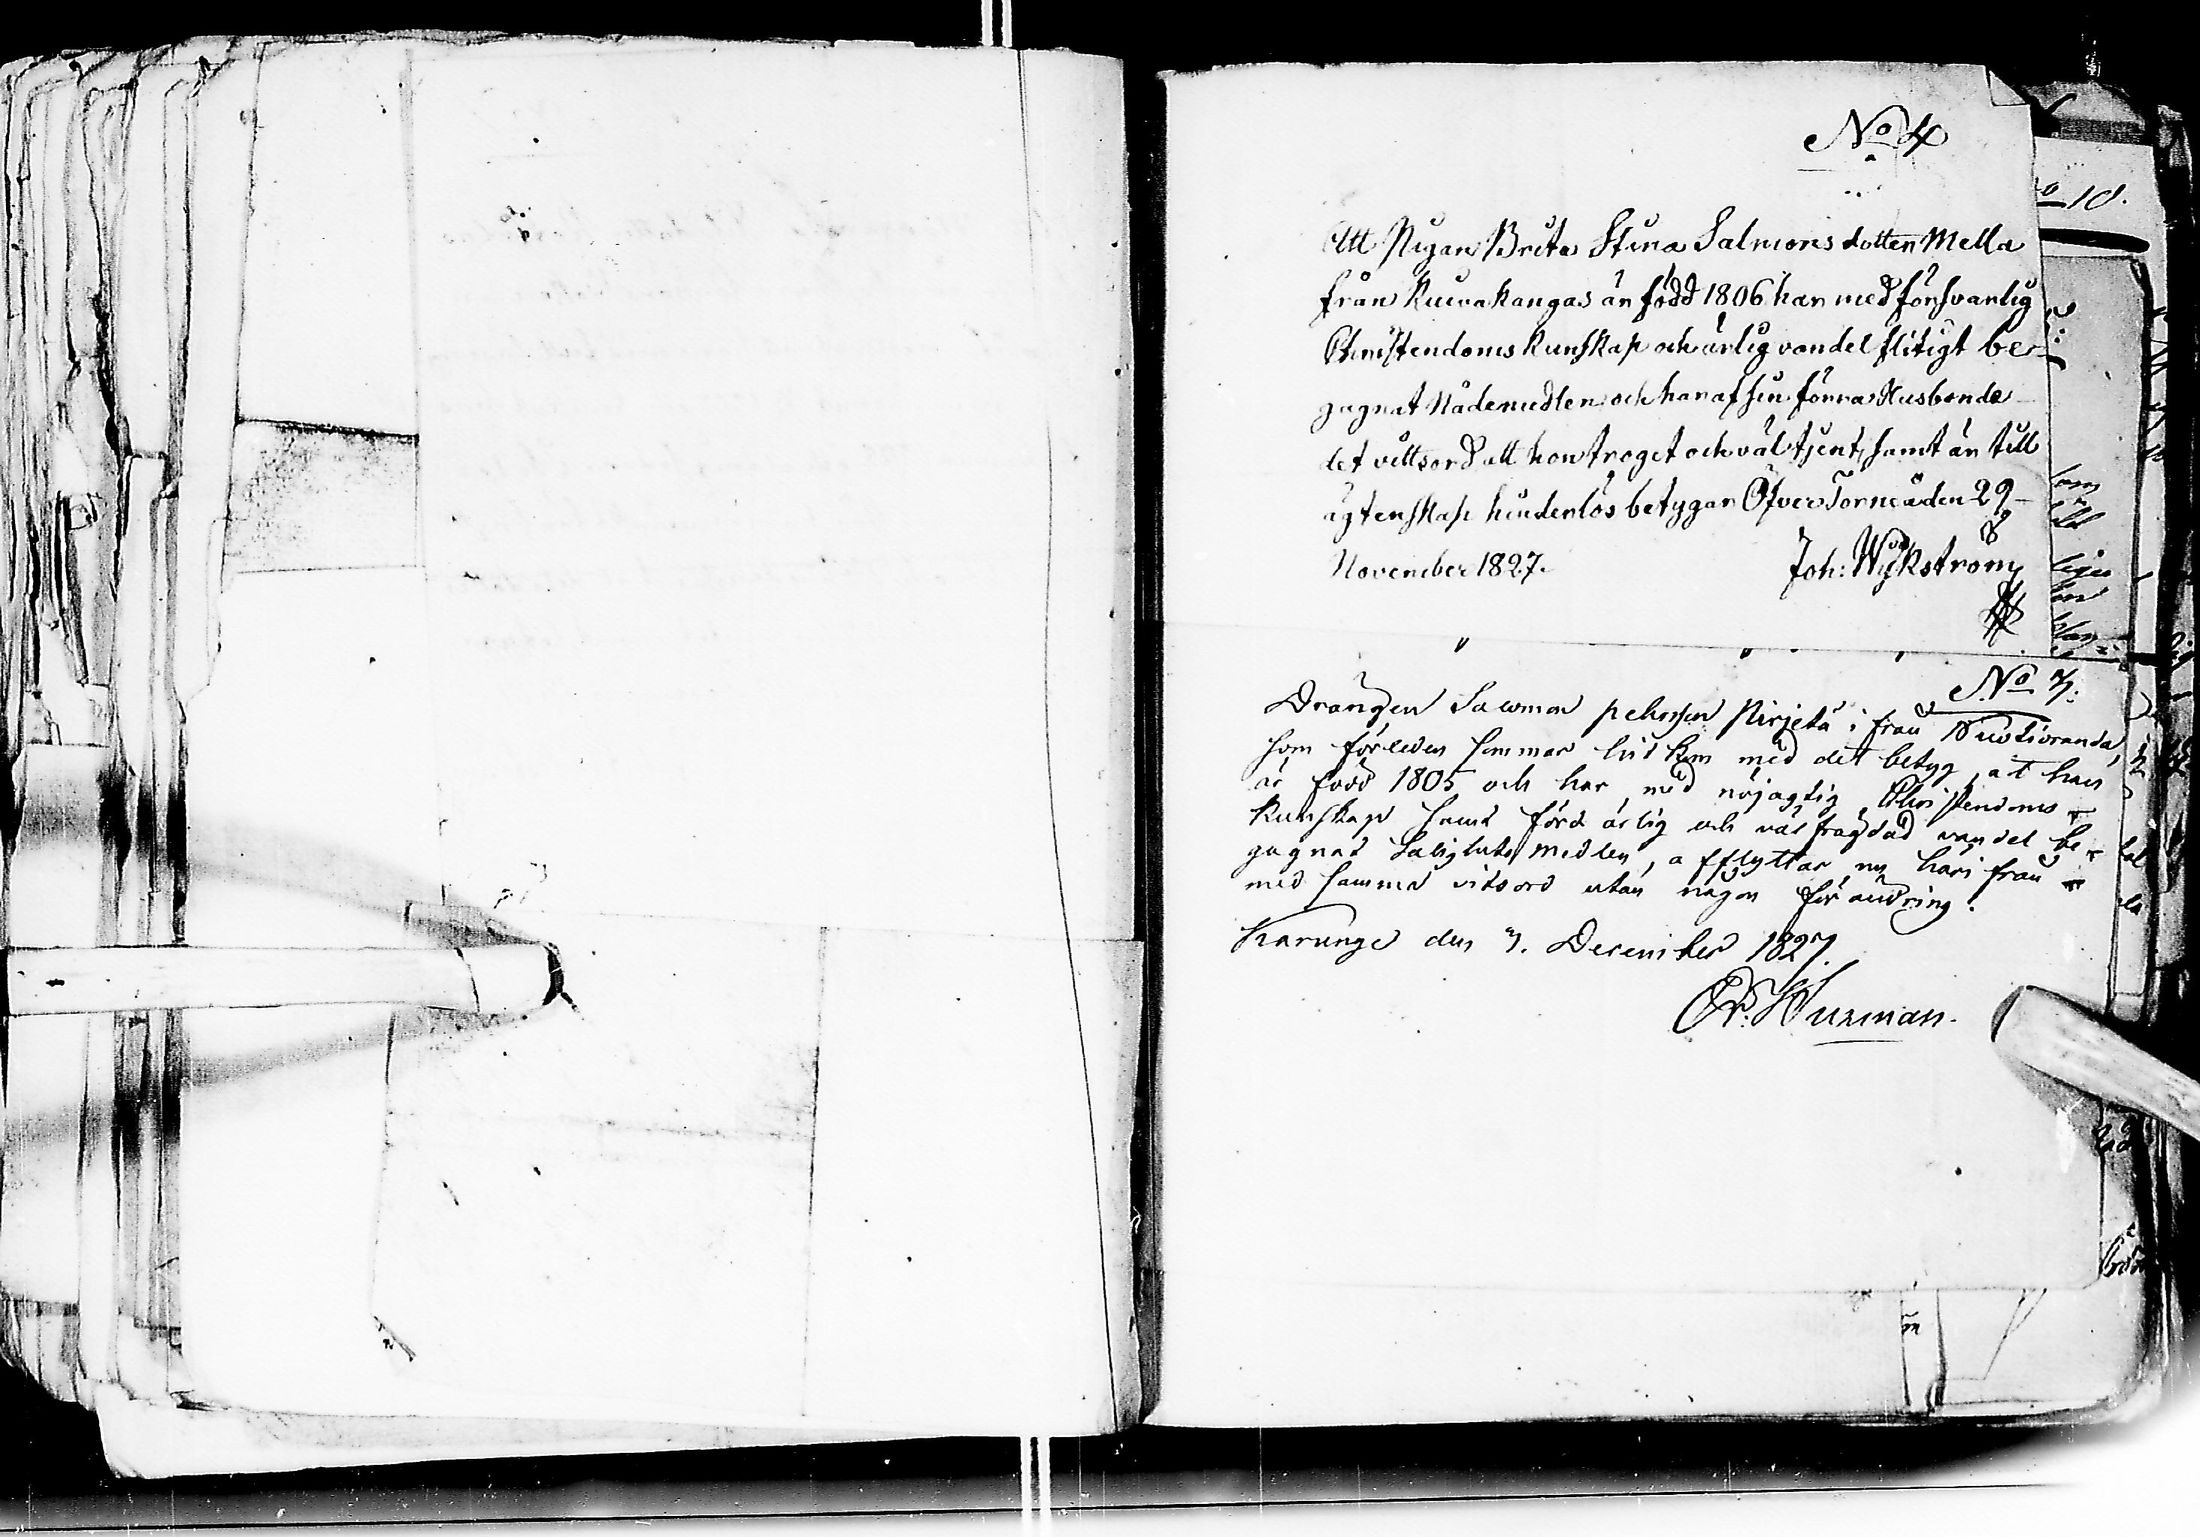 No 4
Att Pigan Brita Stina Salmonsdotter Mella
från Kuivakangas är född 1806 har med försvarlig
Christendoms kunskap och ärlig vandel flitigt be-
gagnat Nådemedlen och har af sin förra Husbonde
det vittsord att hon troget och väl tjent, samt är till
ägtenskap hinderlös betygar Öfver Torneå den 29
November 1827. Joh: Wykström
No 7.
Drängen Salomon Pehrsson Pirjetä i från
som förleden sommar hit kom med det betyg, at han
är född 1805 och har med nöjagtig Christendoms
kunskap samt förd ärlig och välfrägdad vandel be-
gagnat Salighets medlen, afflyttar nu härifrån
med samma vitsord utan någon förändring.
Karungi den 7. December 1827.
Husman.
No 10.